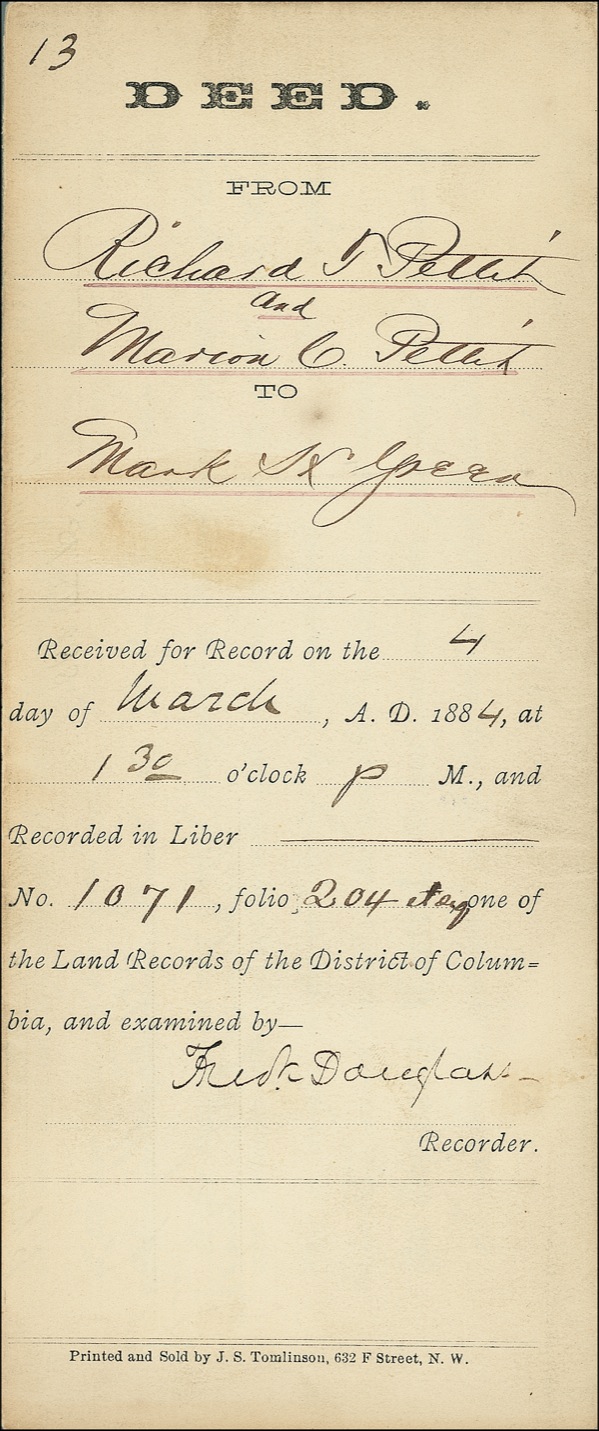 13
DEED.
FROM
Richard T Pettit
and
Marion C. Pettit
TO
Mark
Received for Record on the 4
day of March, A. D. 1884, at
1 30 o'clock P M., and
Recorded in Liber
No. 1071, folio 204 et seq one of
the Land Records of the District of Colum=
bia, and examined by—
Fredk Douglass
Recorder.
Printed and Sold by J. S. Tomlinson, 632 F Street, N. W.